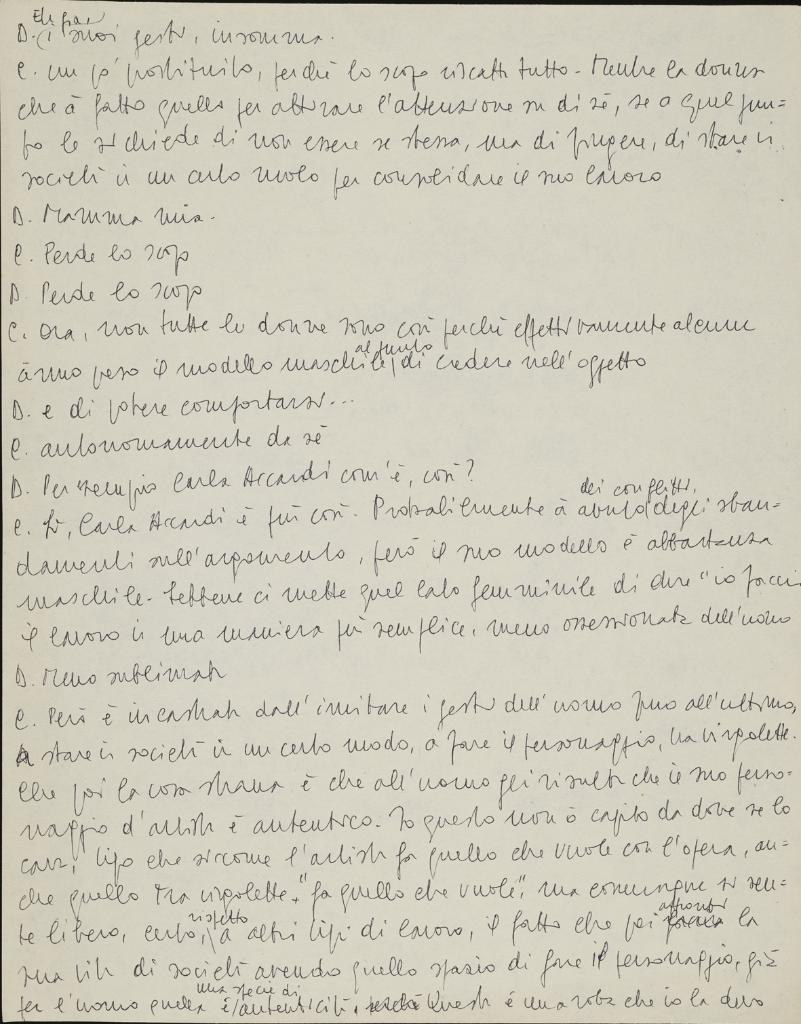 D. (i suoi gesti, insomma.
C. un po' prostituito, perché lo scopo riscatta tutto - Mentre la donna
che à fatto quello per attirare l'attenzione su di sé, se a quel pun=
to le si chiede di non essere se stessa, ma di fingere, di stare in
società in un certo modo per consolidare il suo lavoro
D. Mamma mia.
C. Perde lo scopo
D. Perde lo scopo
C. Ora, non tutte le donne sono così perché effettivamente alcune
ànno preso il modello maschile, al punto di credere nell'oggetto
D. e di potere comportarsi...
C. autonomamente da sé
D. Per esempio Carla Accardi com'è, così?
C. Sì, Carla Accardi è più così. Probabilmente à avuto dei conflitti, degli sban=
damenti sull'argomento, però il suo modello è abbastanza
maschile. Sebbene ci mette quel lato femminile di dire "io faccio
il lavoro in una maniera più semplice, meno ossessionata dell'uomo
D. Meno sublimata
C. Però è incastrata dall'imitare i gesti dell'uomo fino all'ultimo,
a stare in società in un certo modo, a fare il personaggio, tra virgolette.
Che poi la cosa strana è che all'uomo gli risulta che il suo perso=
naggio d'artista è autentico. Io questo non ò capito da dove se lo
cava, tipo che siccome l'artista fa quello che vuole con l'opera, an=
che quello tra virgolette, "fa quello che vuole", ma comunque si sen=
te libero, certo, rispetto a altri tipi di lavoro, il fatto che poi affronta la
sua vita di società avendo quello spazio di fare il personaggio, già
per l'uomo quella è una specie di autenticità, Questa è una roba che io la devo